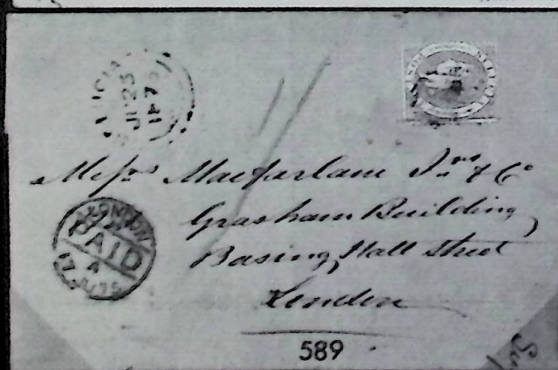 JU 25
187
Messrs Macfarlane Jnr & Co
Grasham Building,
Basing Hall Street
London
LONDON
PAID
4
17 JY 75
589